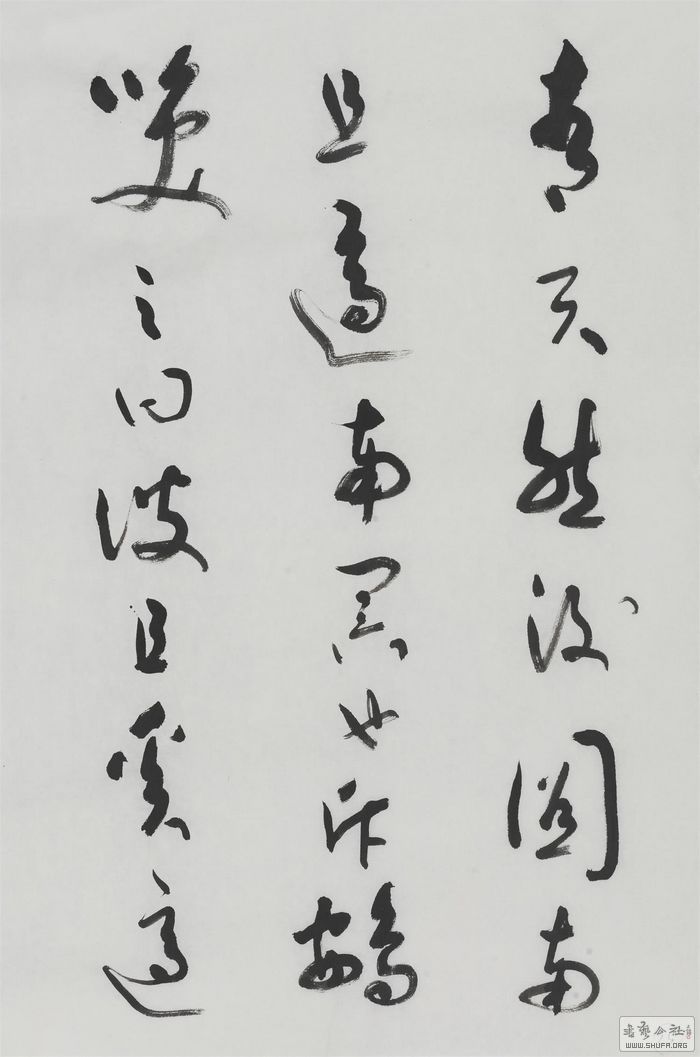 青天然後圖南
且適南冥也斥鷃
笑之曰彼且奚適
WWW.SHUFA.ORG